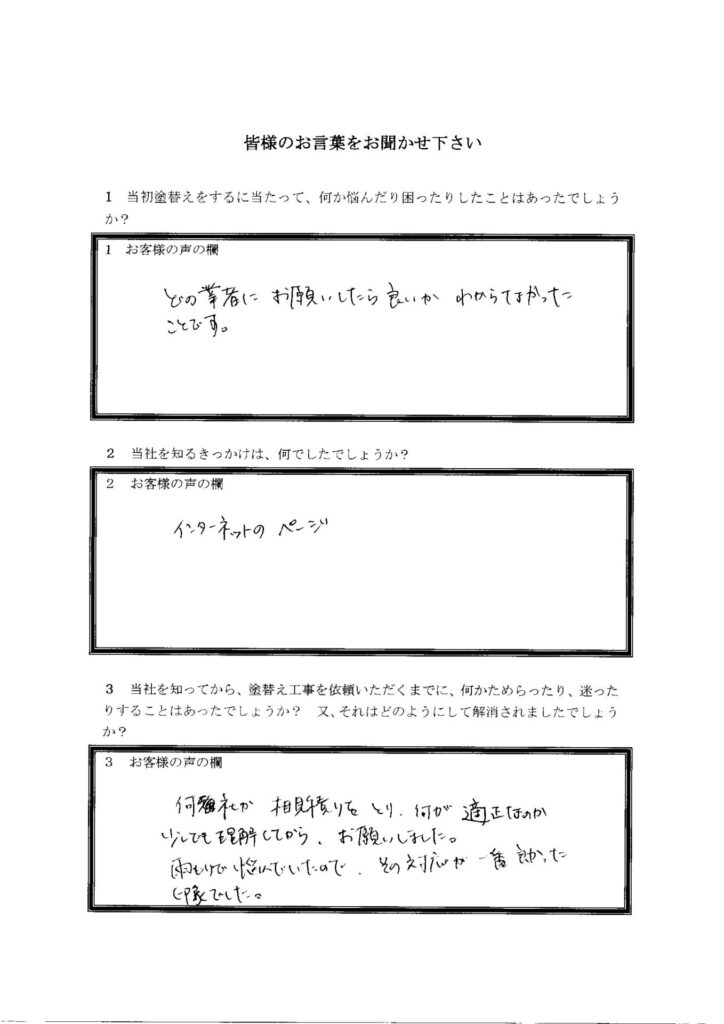 皆様のお言葉をお聞かせ下さい
1 当初塗替えをするに当たって、何か悩んだり困ったりしたことはあったでしょう
か？
1 お客様の声の欄
どの業者に お願いしたら良いか わからなかった
ことです。
2 当社を知るきっかけは、何でしたでしょうか？
2 お客様の声の欄
インターネットの ページ
3 当社を知ってから、塗替え工事を依頼いただくまでに、何かためらったり、迷った
りすることはあったでしょうか？ 又、それはどのようにして解消されましたでしょう
か？
3 お客様の声の欄
何社か 相見積りをとり、何が 適正なのか
少しでも理解してから、お願いしました。
雨もりで悩んでいたので、その対応が一番良かった
印象でした。